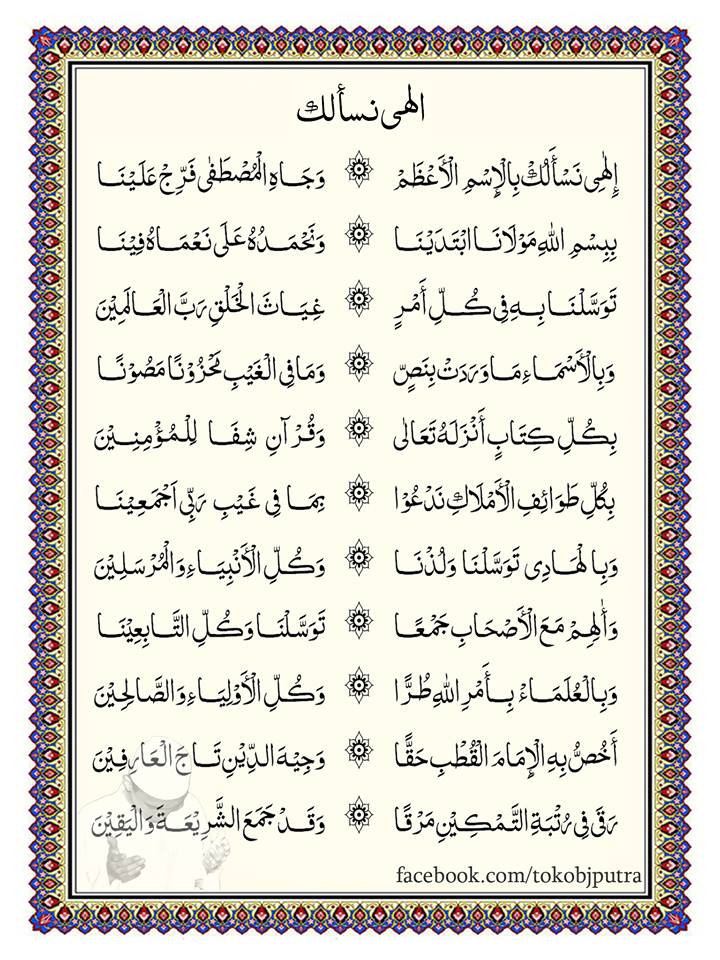 الهى نسألك
إِلٰهِى نَسْأَلُكْ بِالْإِسْمِ الْأَعْظَمْ ۞ وَجَاهِ الْمُصْطَفٰى فَرِّجْ عَلَيْنَا
بِبِسْمِ اللهِ مَوْلَانَا ابْتَدَيْنَا ۞ وَنَحْمَدُهُ عَلَى نَعْمَاهُ فِيْنَا
تَوَسَّلْنَا بِهِ فِى كُلِّ أَمْرٍ ۞ غِيَاثَ الْخَلْقِ رَبَّ الْعَالَمِيْنَ
وَبِالْأَسْمَاءِ مَا وَرَدَتْ بِنَصٍّ ۞ وَمَا فِى الْغَيْبِ مَخْزُوْنًا مَصُوْنًا
بِكُلِّ كِتَابٍ أَنْزَلَهُ تَعَالٰى ۞ وَقُرْآنِ شِفَا لِلْمُؤْمِنِيْنَ
بِكُلِّ طَوَائِفِ الْأَمْلَاكِ نَدْعُوْا ۞ بِمَا فِى غَيْبِ رَبِّى اَجْمَعِيْنَا
وَبِالْهَادِى تَوَسَّلْنَا وَلُذْنَا ۞ وَكُلِّ الْأَنْبِيَاءِ وَالْمُرْسَلِيْنَ
وَأٰلِهِمْ مَعَ الْأَصْحَابِ جَمْعًا ۞ تَوَسَّلْنَا وَكُلِّ التَّابِعِيْنَا
وَبِالْعُلَمَاءْ بِأَمْرِ اللهِ طُرًّا ۞ وَكُلِّ الْأَوْلِيَاءِ وَالصَّالِحِيْنَ
أَخُصُّ بِهِ الْإِمَامَ الْقُطْبِ حَقًّا ۞ وَجِيْهَ الدِّيْنِ تَاجَ الْعَارِفِيْنَ
رَقَى فِى رُتْبَةِ التَّمْكِيْنِ مَرْقًا ۞ وَقَدْ جَمَعَ الشَّرِيْعَةَ وَالْيَقِيْنَ
facebook.com/tokobjputra